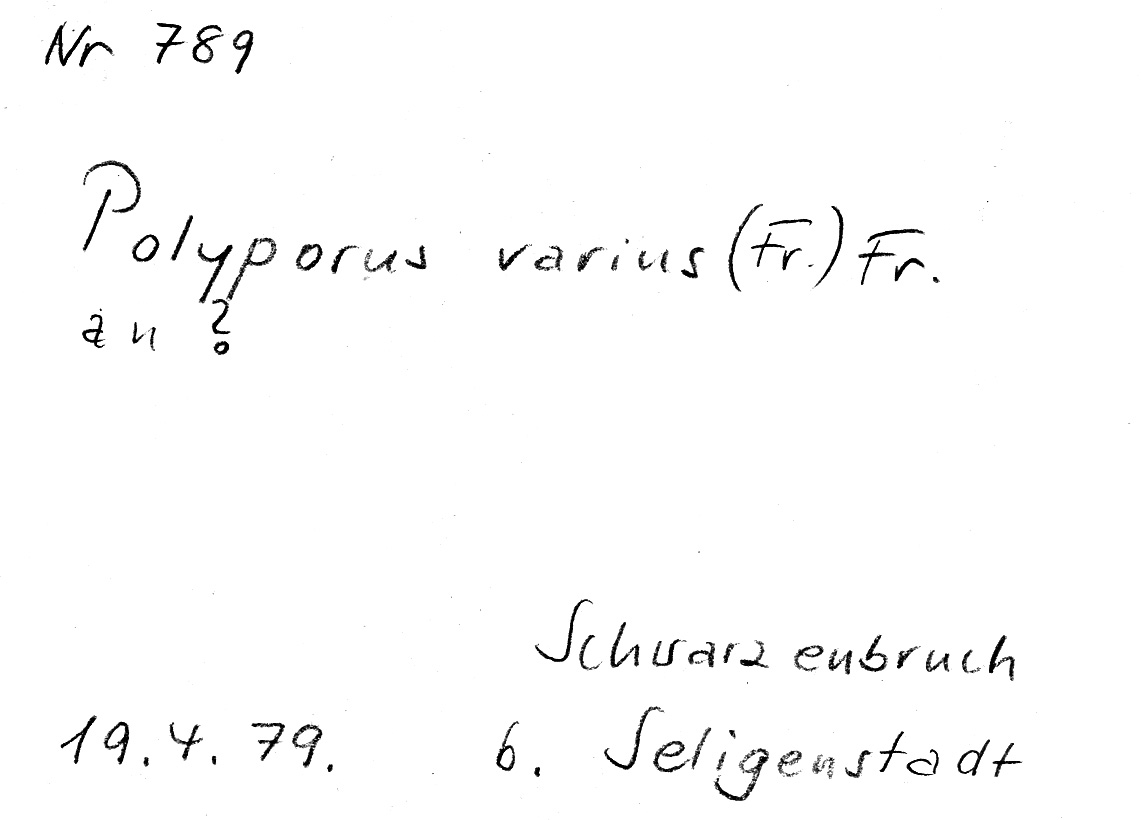 Nr 789
Polyporus varius (Fr.) Fr.
an ?
Schwarzenbruch
19.4.79. b. Seligenstadt